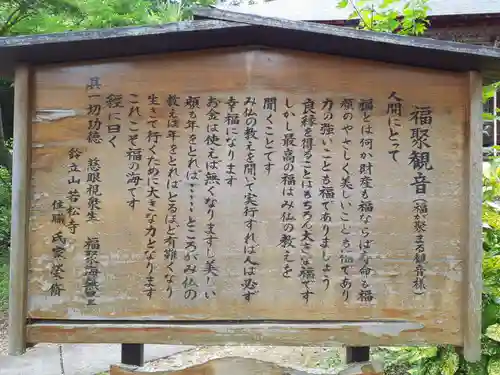 福聚観音(福が聚まる観音様)
人間にとって
福とは何か財産も福ならば寿命も福
顔のやさしく美しいことも福であり
力の強いことも福でありましょう
良縁を得ることはもちろん大きな福です
しかし最高の福はみ仏の教えを
聞くことです
みの教えを聞いて実行すれば人は必ず
幸福になります
お金は使えば無くなりますし美しい
顔も年をとれば……ところがみ仏の
教えは年をとればとるほど有難くなり
生きて行くために大きな力となります
これこそ福の海です
経に曰く
具一切功徳 慈眼視衆生 福聚海無量
鈴立山若松寺
住職 氏家榮脩